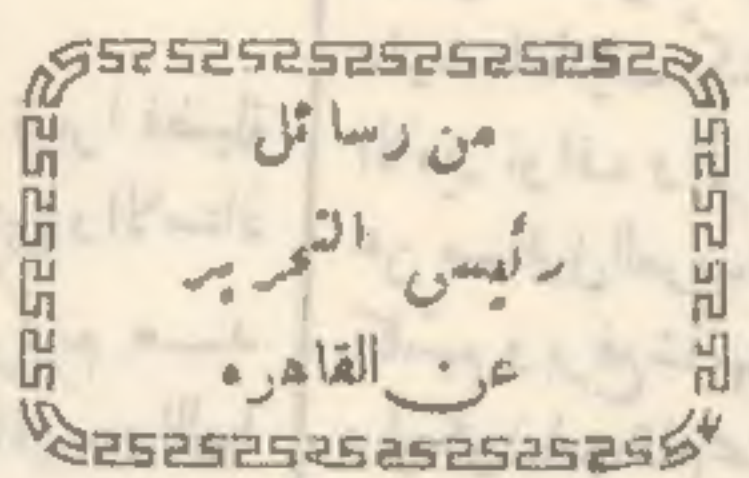 من رسائل
رئيس التحرير
عن القاهره